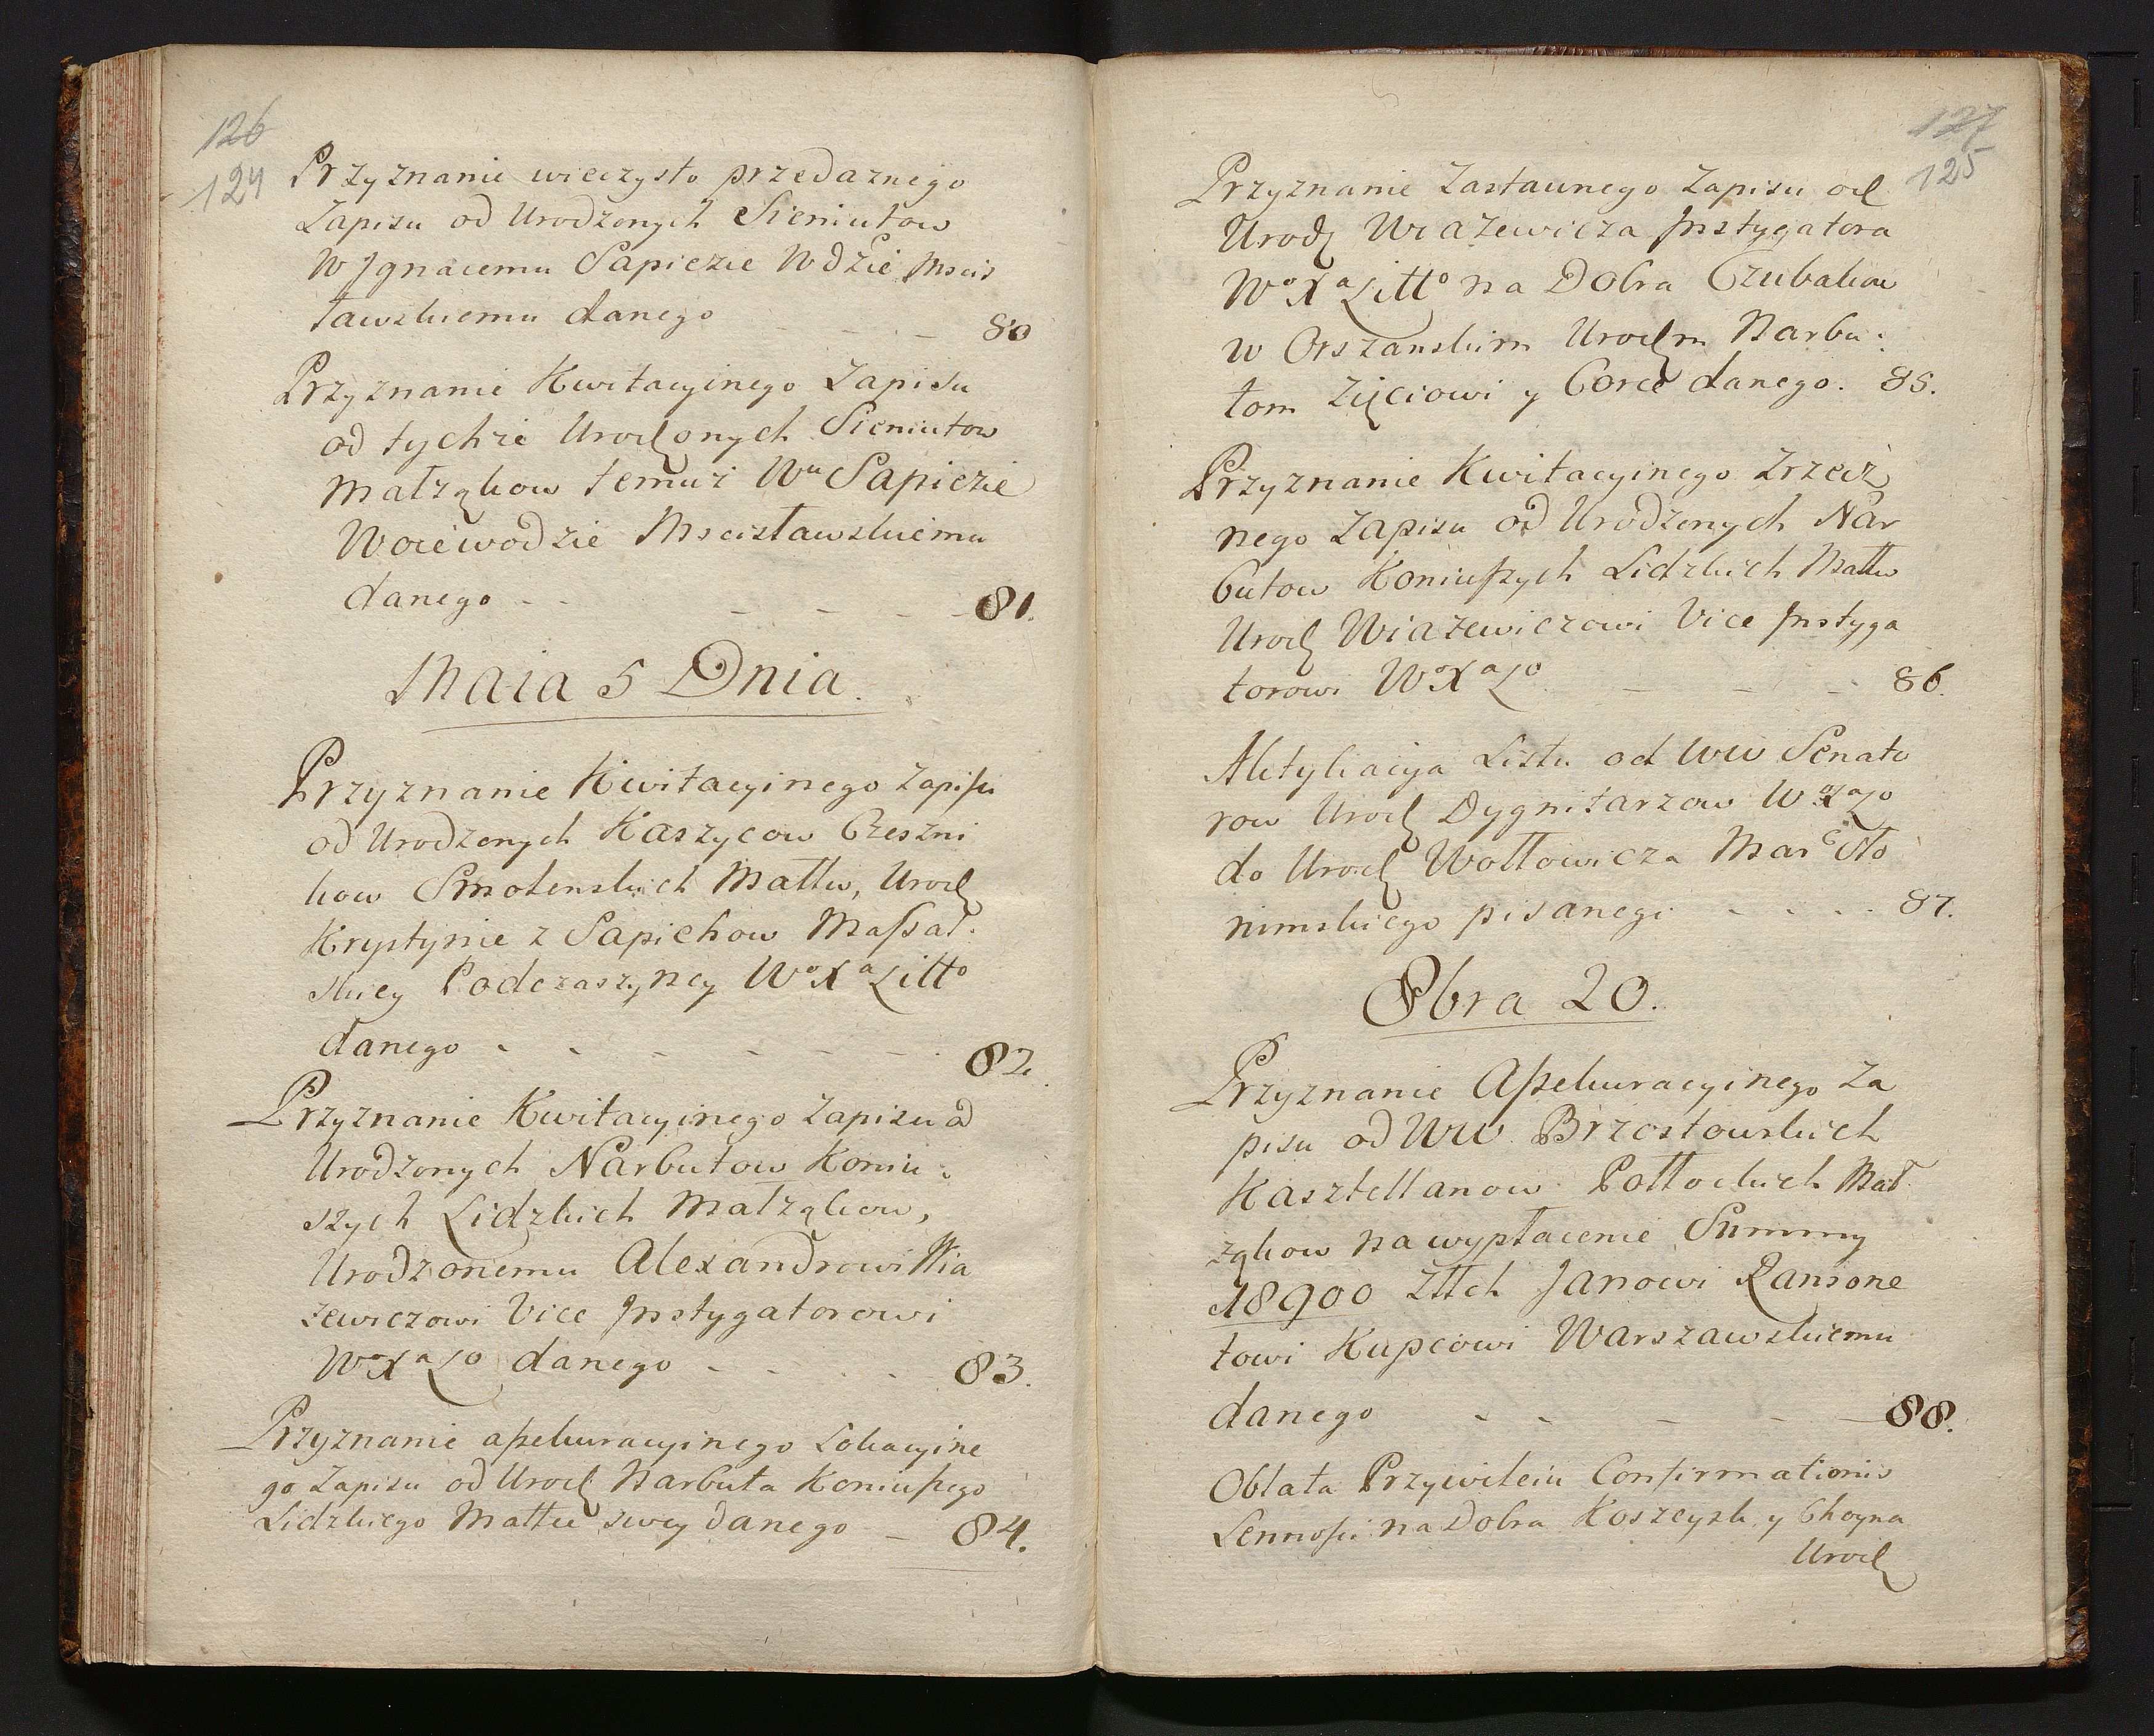 126
124
Przyznanie wieczysto przedaznego
Zapisu od Urodzonych Sieniutow
W Jgnacemu Sapiezie Wdzie Mscis
ławskiemu danego - - - 80
Przyznanie Kwitacyinego Zapisu
od tychże Urodzonych Sieniutow
Małząkow temuż Wu Sapiezie
Woiewodzie Mscisławskiemu
danego - - - - - - 81.
Maia 5 Dnia.
Przyznanie Kwitacyinego Zapisu
od Urodzonych Kaszycow Czeszni
kow Smolenskich Małłw, Urodz
Krystynie z Sapiehow Massal.
skiey Podczaszyney Wo Xa Litto
danego - - - - - - 82.
Przyznanie Kwitacyinego Zapisu od
Urodzonych Narbutow Koniu:
szych Lidzkich Małząkow,
Urodzonemu Alexandrowi Wia
zewiczowi Vice Jnstygatorowi
Wo Xa Lo danego - - - - 83.
Przyznanie assekuracyinego Lokacyine
go Zapisu od Urodz Narbuta Koniuszego
Lidzkiego Małłce swey danego - 84.
127
125
Przyznanie Zastawnego Zapisu od
Urodz Wiazewicza Jnstygatora
Wo Xa Litto na Dobra Czubakow
w Orszanskim Urodzm Narbu:
tom Zięciowi y Corce danego. 85.
Przyznanie Kwitacyinego Zrzecz
nego Zapisu od Urodzonych Nar
butow Koniuszych Lidzkich Małłw
Urodz Wiazewiczowi Vice Jnstyga
torowi Wo Xa Lo - - - 86.
Aktykacya Listu od WW Senato
row Urodz Dygnitarzow Wo Xa Lo
do Urodz Wołłowicza Mar Sło
nimskiego pisanego - - - - 87.
8bra 20.
Przyznanie Assekuracyinego Za
pisu od WW Brzostowskich
Kasztellanow Połłockich Mał
ząkow na wypłacenie Summy
18900 Złłch Janowi Ransone
towi Kupcowi Warszawskiemu
danego - - - - - 88.
Oblata Przywileiu Confirmationis
Lennosci na Dobra Koszeysk y Choyna
Urodz